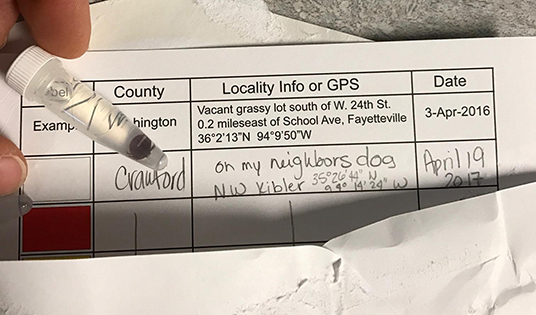 County
Locality Info or GPS
Date
Vacant grassy lot south of W. 24th St.
0.2 mileseast of School Ave, Fayetteville
36°2'13"N 94°9'50"W
3-Apr-2016
Crawford
on my neighbors dog
NW Kibler 35°26'44" N
94° 14' 24" W
April 19
2017